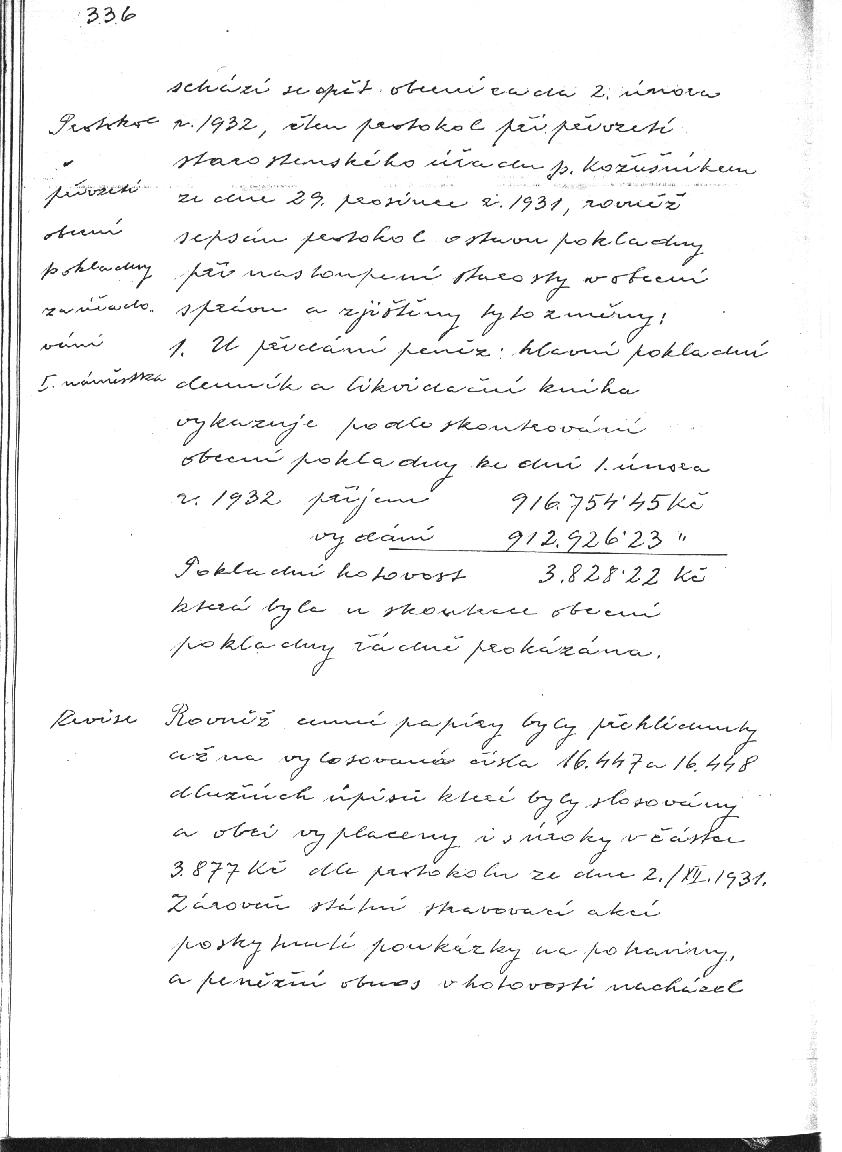 336
schází se opět obecní rada 2. února
r. 1932, čten protokol při převzetí
starostenského úřadu p. Kožušníkem
ze dne 29. prosince r. 1931, rovněž
sepsán protokol o stavu pokladny
při nastoupení starosty v obecní
správu a zjištěny tyto změny:
1. U předání peněz: hlavní pokladní
denník a likvidační kniha
vykazuje podle skontrování
obecní pokladny ke dni 1. února
r. 1932 příjem 916.754·45 Kč
vydání 912.926·23 "
Pokladní hotovost 3.828·22 Kč
která byla u skontrace obecní
pokladny řádně prokázána.
Protokol
o
převzetí
obecní
pokladny
za úřado-
vání
I. náměstka
Revise
Rovněž cenné papíry byly přehlédnuty
až na vylosovaná čísla 16.447 a 16.448
dlužních úpisů kteří byly slosovány
a obci vyplaceny i s úroky v částce
3.877 Kč dle protokolu ze dne 2./XII. 1931.
Zároveň státní stravovací akcí
poskytnuté poukázky na potraviny,
a peněžní obnos v hotovosti nacházel